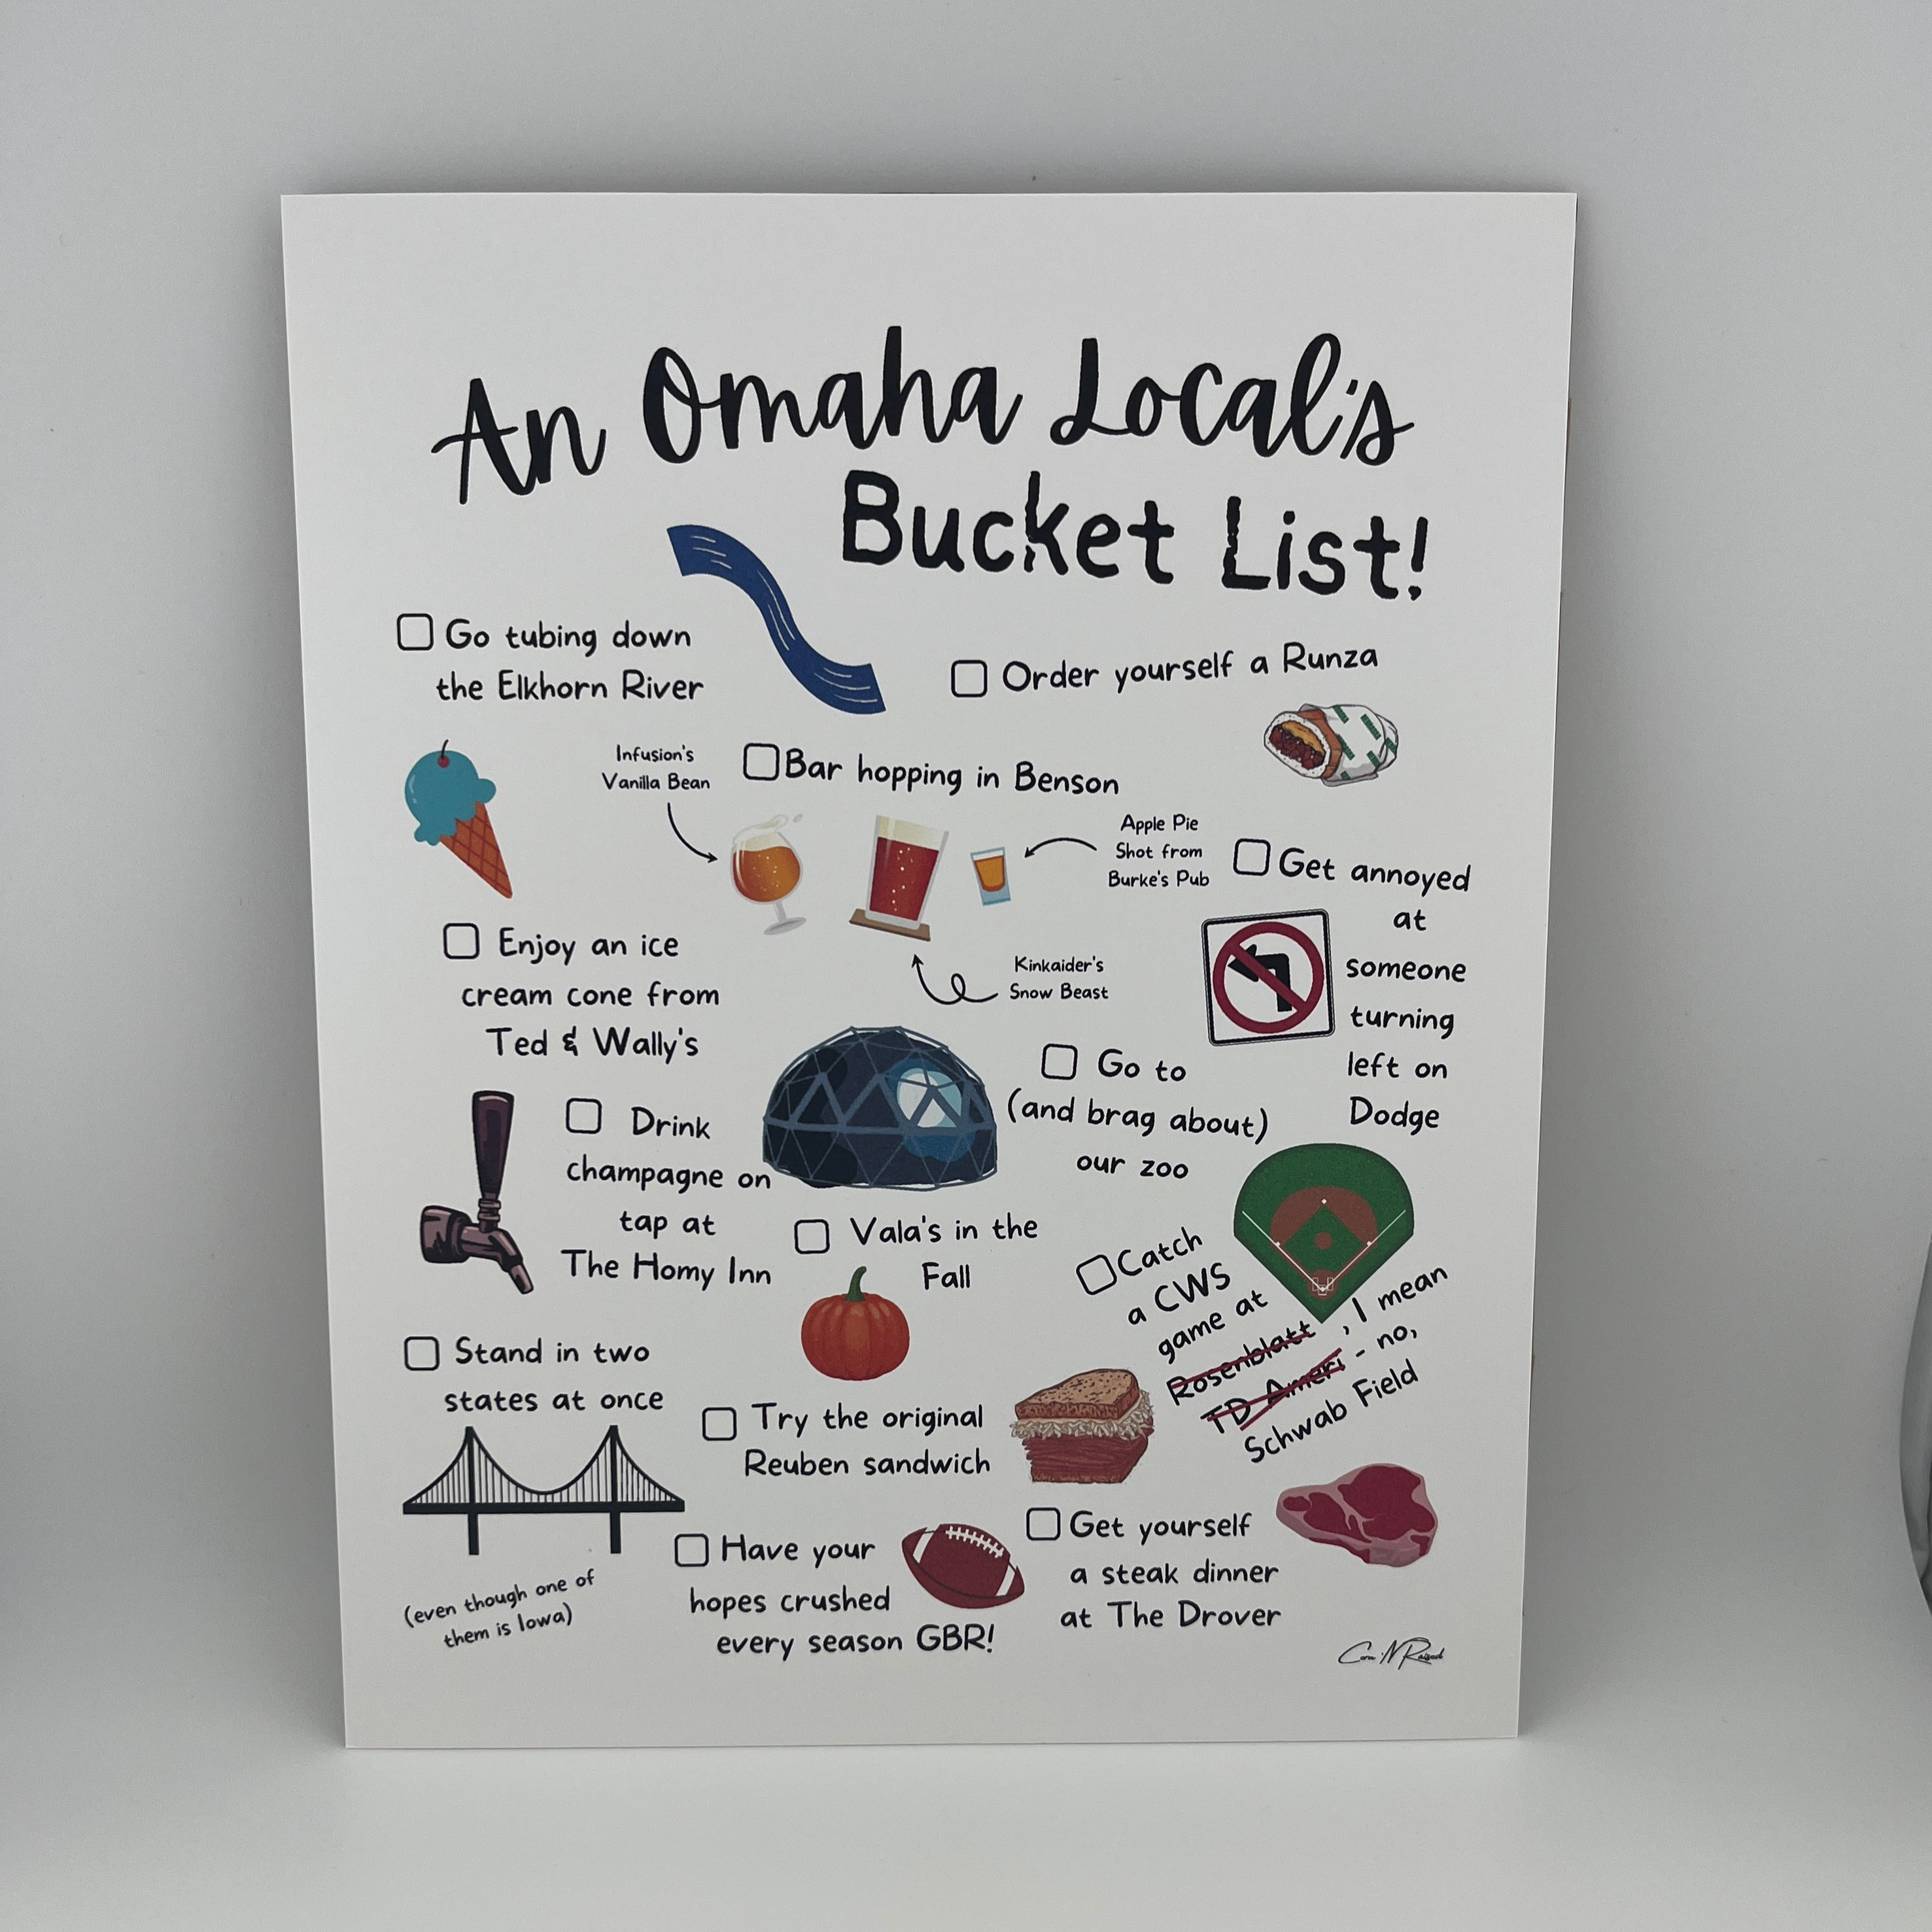 An Omaha Local's
Bucket List!
Go tubing down
the Elkhorn River
Order yourself a Runza
Infusion's
Vanilla Bean
Bar hopping in Benson
Apple Pie
Shot from
Burke's Pub
Kinkaider's
Snow Beast
Get annoyed
at
someone
turning
left on
Dodge
Enjoy an ice
cream cone from
Ted & Wally's
Go to
(and brag about)
our zoo
Drink
champagne on
tap at
The Homy Inn
Vala's in the
Fall
Catch
a CWS
game at
Rosenblatt, I mean
TD Ameri - no,
Schwab Field
Stand in two
states at once
(even though one of
them is Iowa)
Try the original
Reuben sandwich
Have your
hopes crushed
every season GBR!
Get yourself
a steak dinner
at The Drover
Corn N Raised